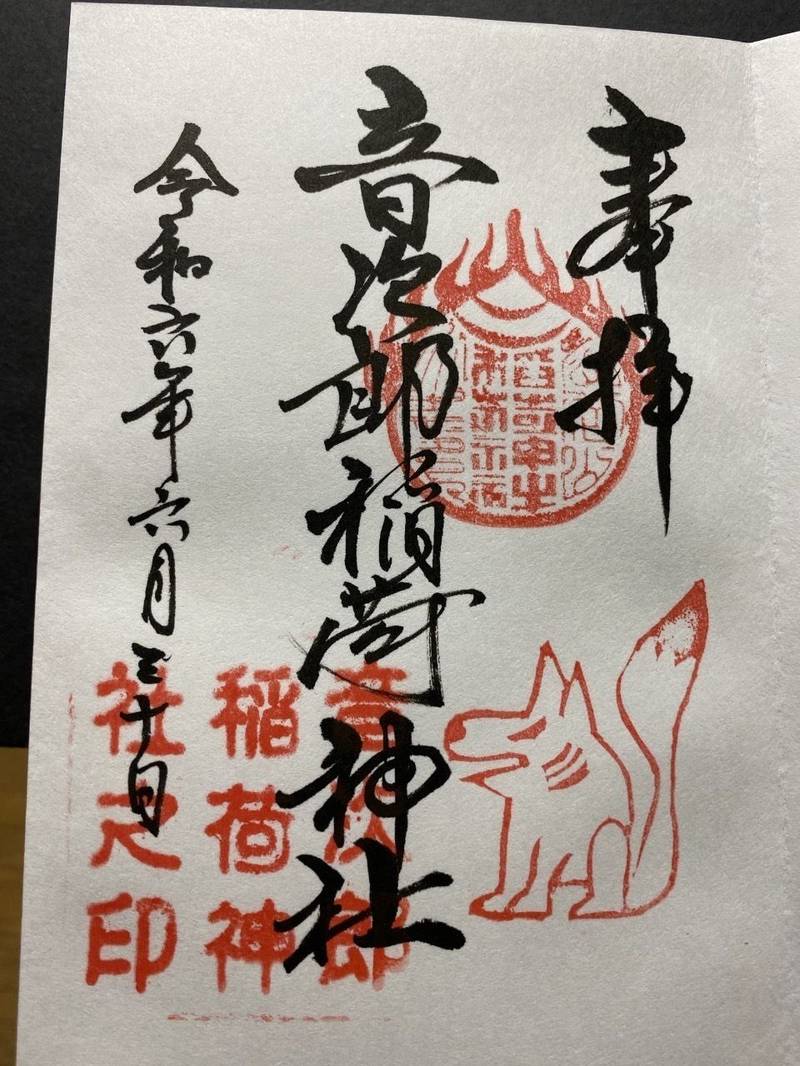 奉拝
音次郎稲荷神社
令和六年六月三十日
音次郎
稲荷神
社之印